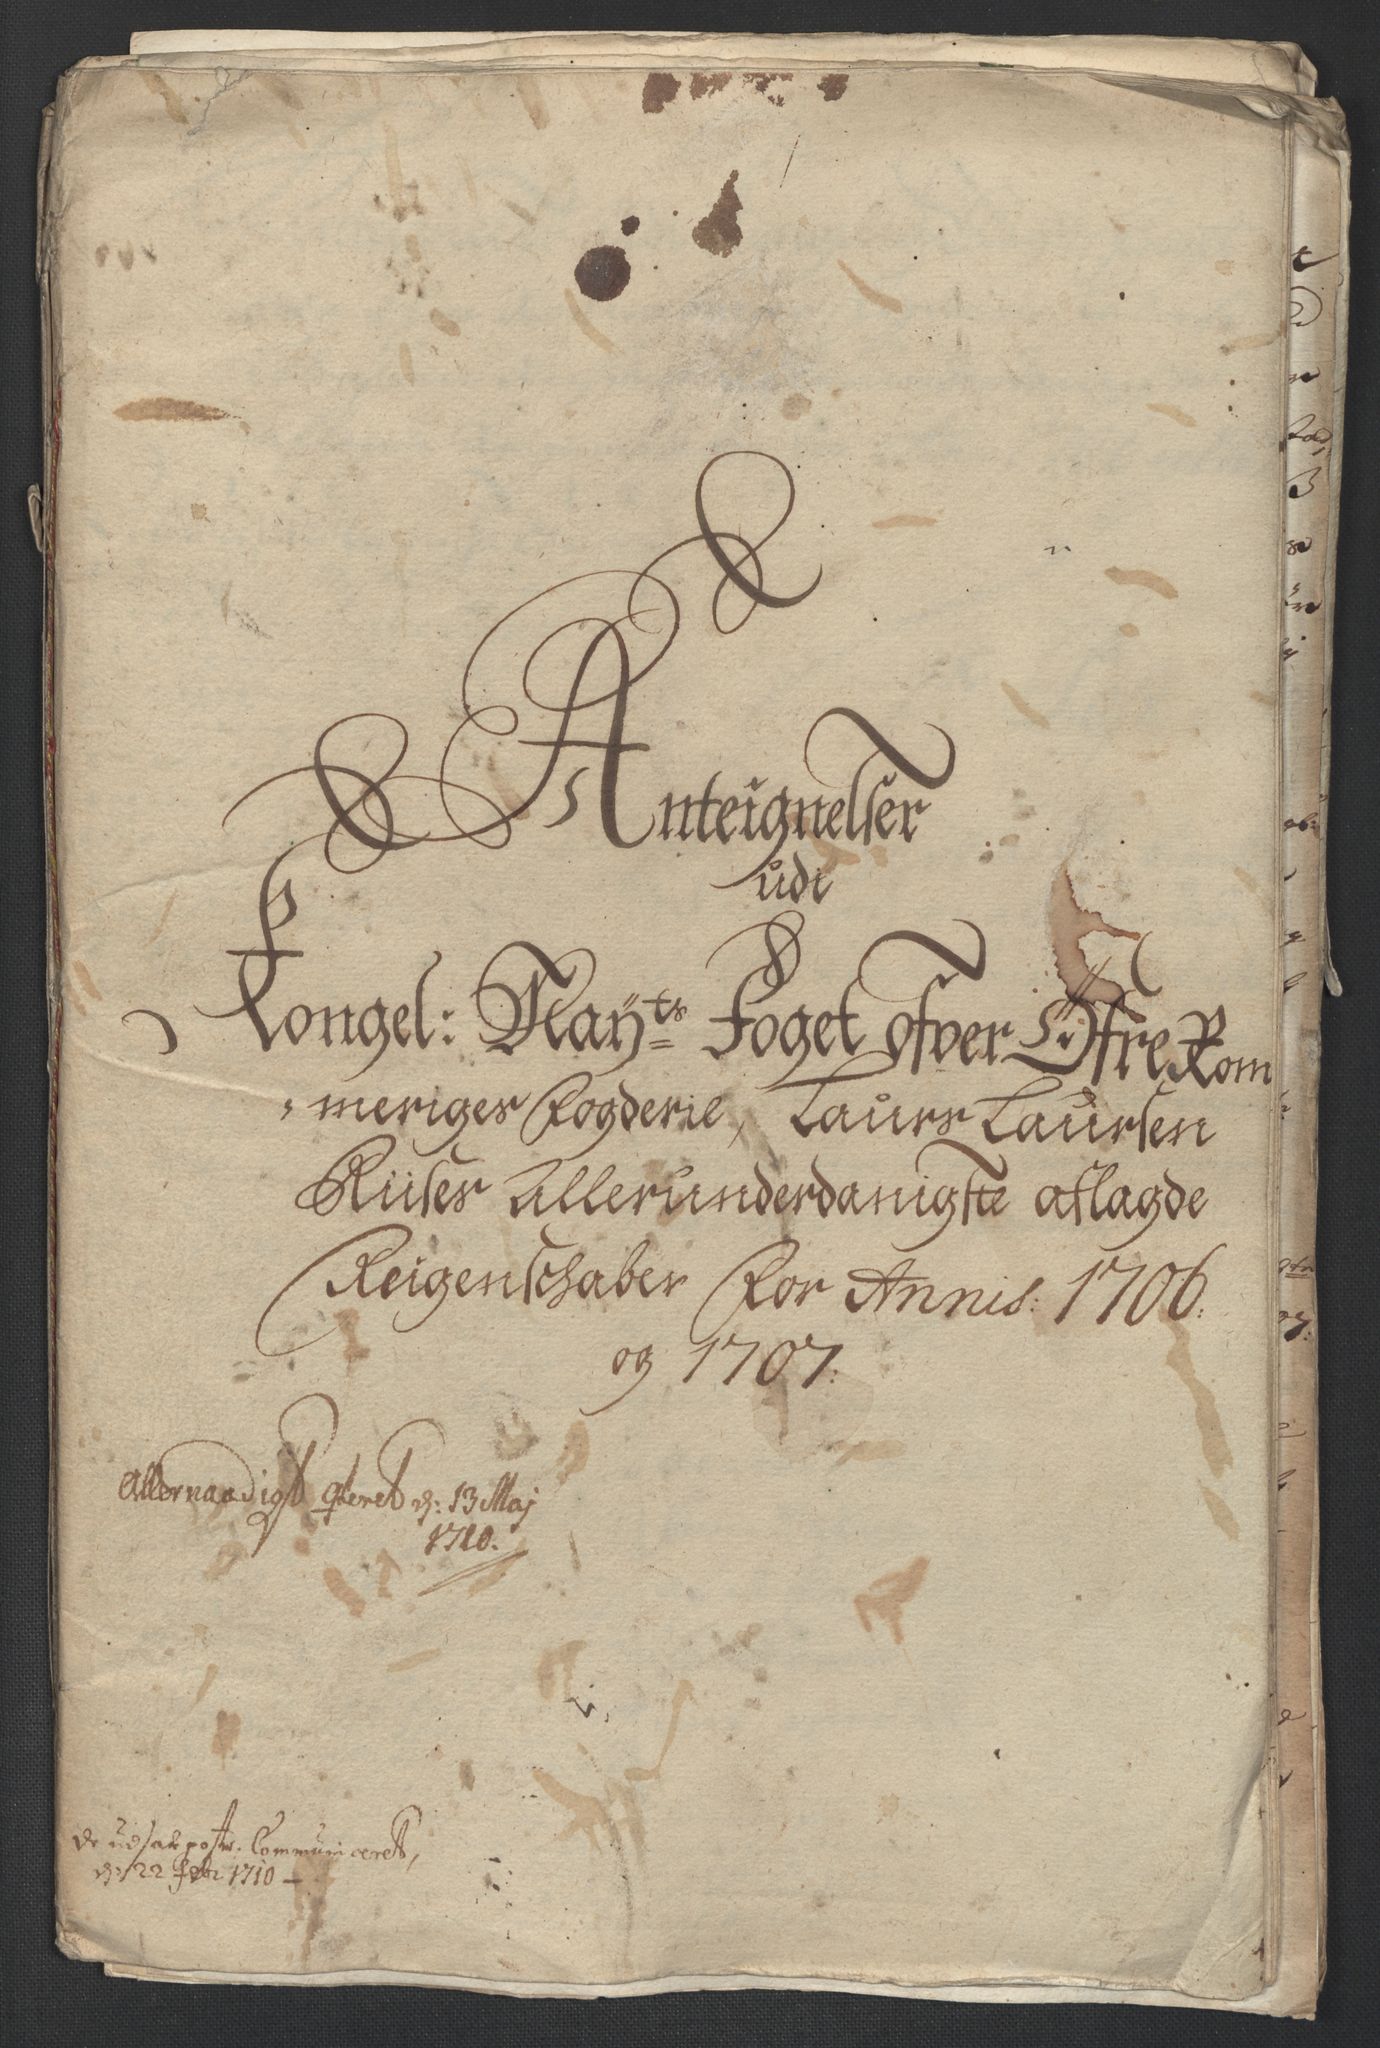 Anteignelser
udi
Kongel: Maÿts Foget ofver Öfre Rom
meriges Fogderie, Laurs Laursen
Riises Allerunderdanigste aflagde
Reigenschaber For Annis: 1706.
og 1707.
Allernaadigst qteret d: 13 Maj
1710.
de udsatte poster Communiceret,
d: 22 febr 1710